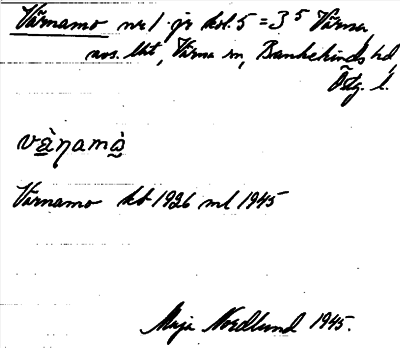 Värnamo nr 1 jr kol. 5 = 3⁵ Värna,
avs. lht, Värna sn, Bankekinds hd,
Östg. l.
vä̀ŋamå̀
Värnamo kb 1926 ml 1945
Maja Nordlund 1945.